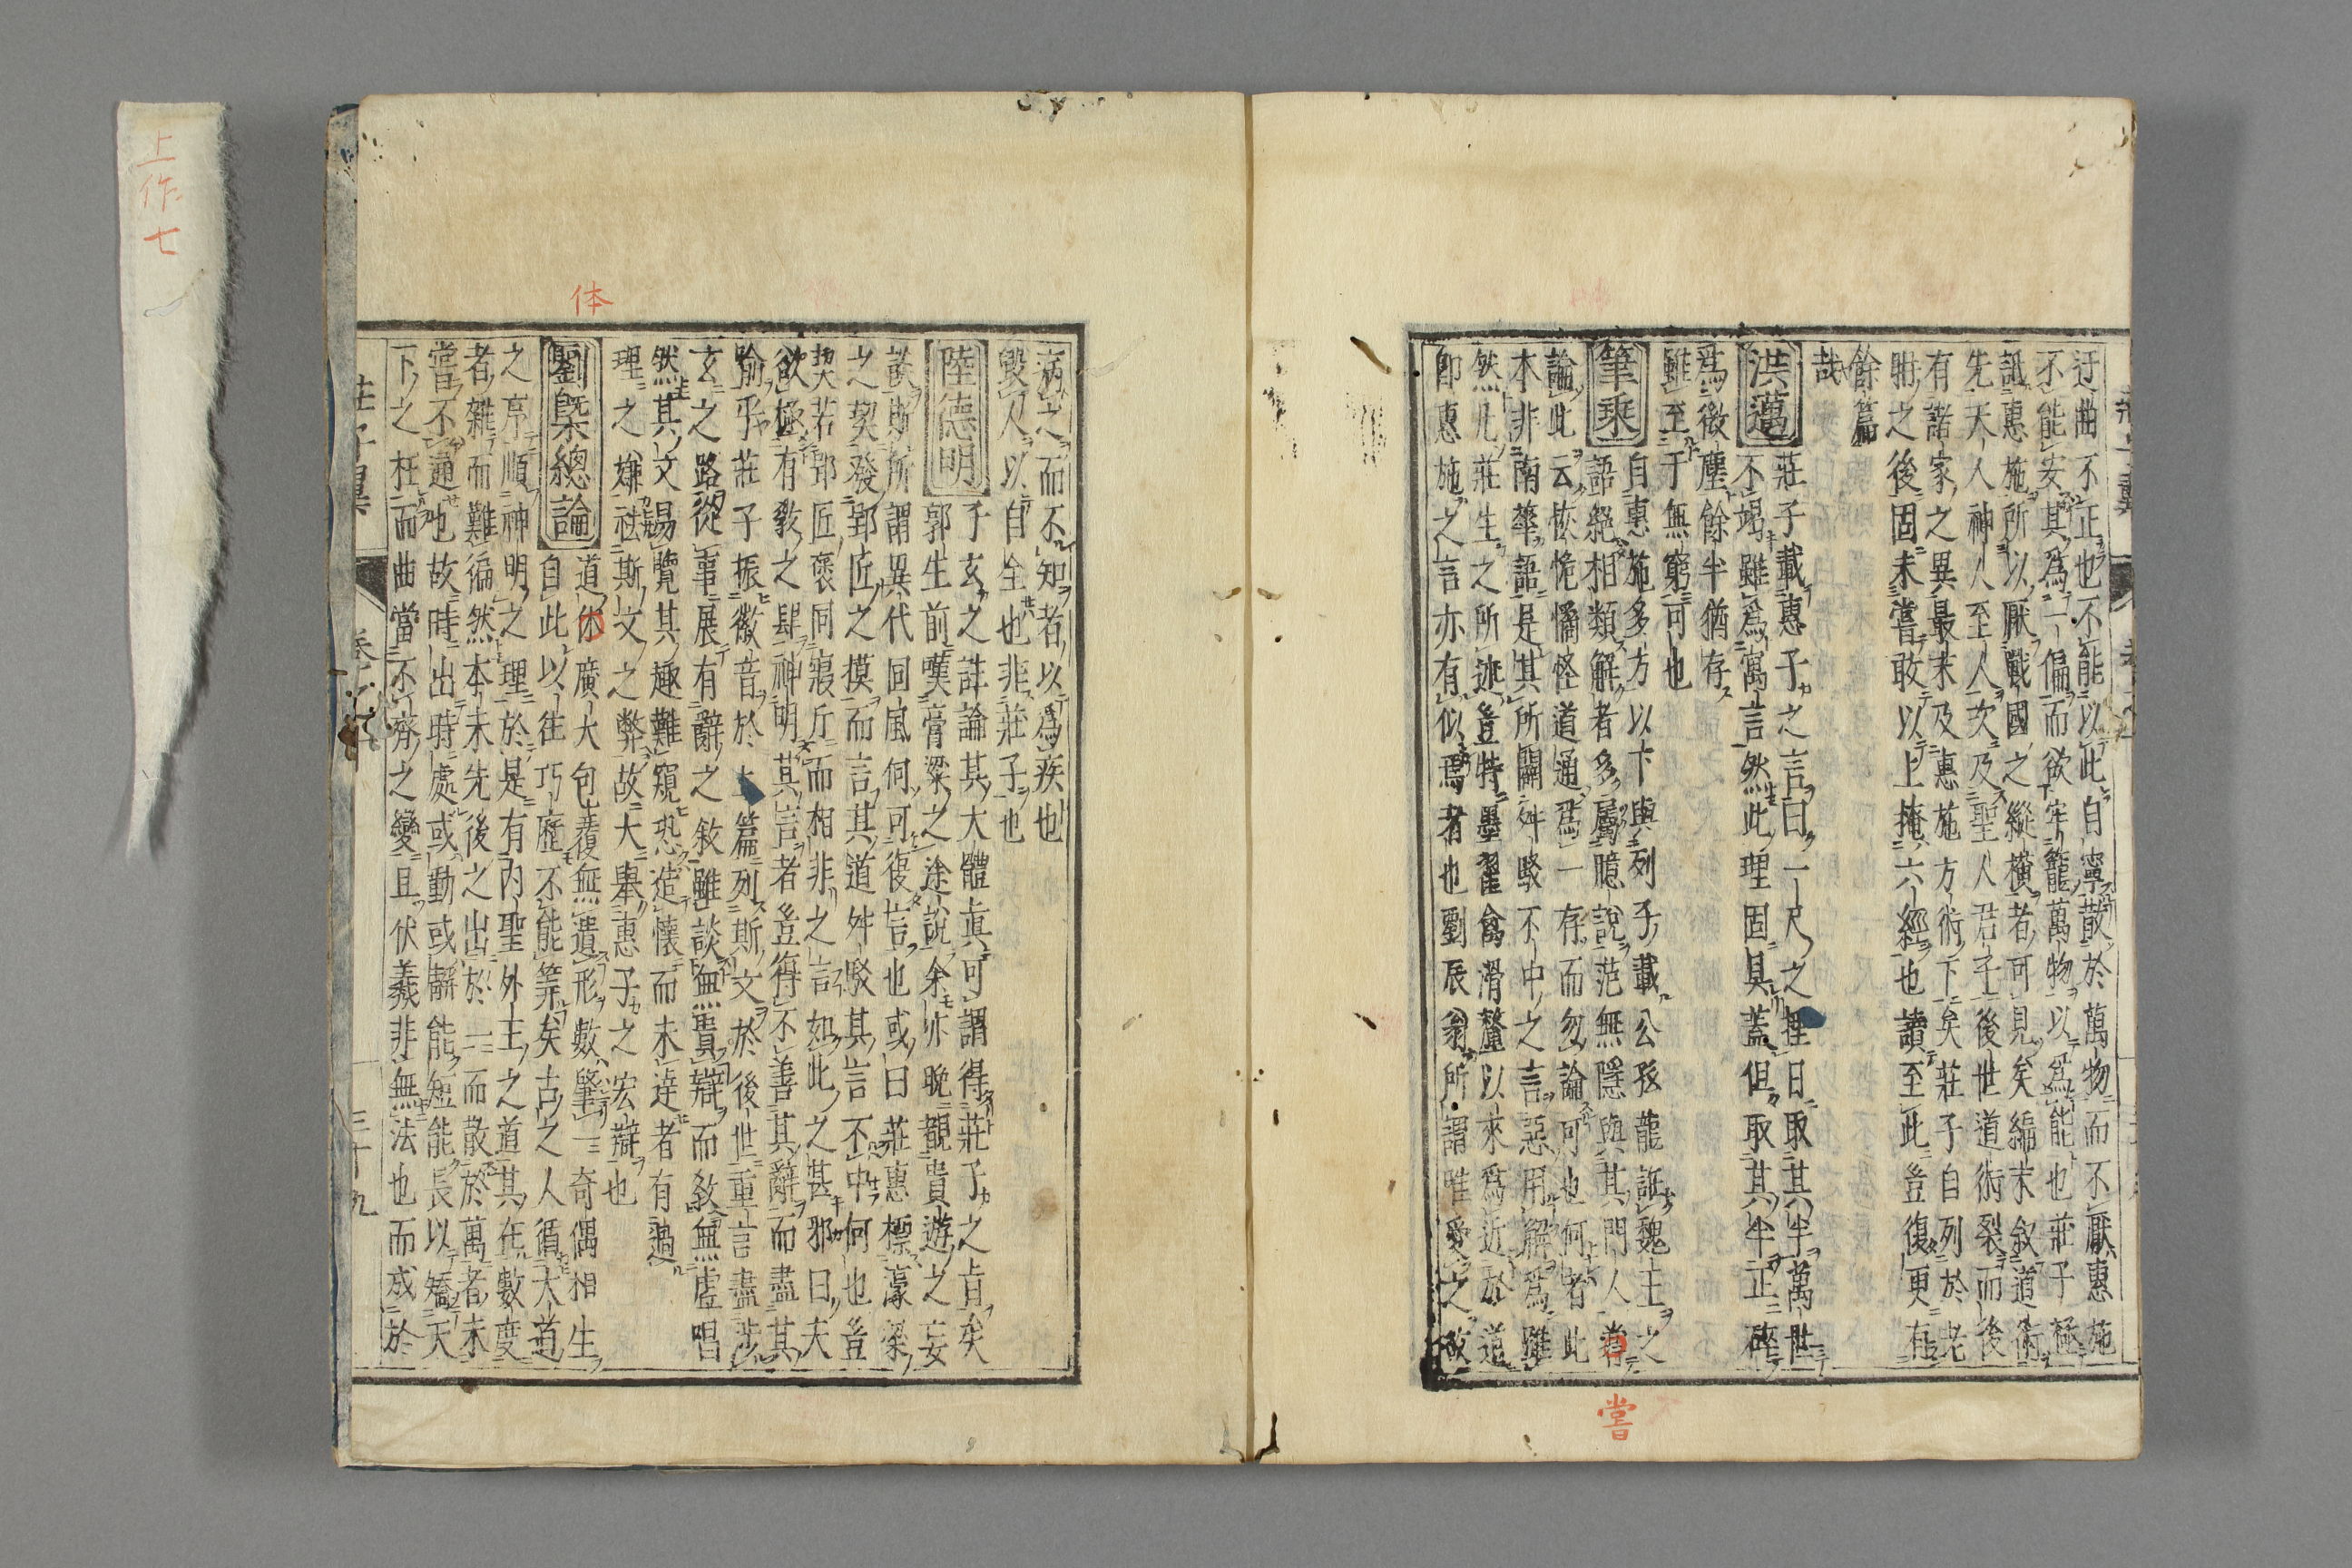 迂曲不正也不能以此自寧散於萬物而不厭惠施
不能安其爲一偏而欲牢籠萬物以爲能也莊子極
詆惠施所以厭戰國之縱橫者可見矣編末敘道術
先天人神人至人次及聖人君子後世道術裂而後
有諸家之異最末及惠施方術下矣莊子自列於老
耼之後固未嘗敢以上掩六經也讀至此豈復更有
餘篇
哉
洪邁
莊子載惠子之言曰一尺之捶日取其半萬世
不竭雖爲寓言然此理固具蓋但取其半正碎
爲微塵餘半猶存
雖至于無窮可也
筆乘
自惠施多方以下與列子載公孫龍誑魏王之
語絕相類解者多屬臆說范無隱與其門人嘗
論此云恢恑憰怪道通爲一存而勿論可也何者此
本非南華語是其所闢舛駁不中之言惡用解爲雖
然凡莊生之所述豈特墨翟禽滑釐以來爲近於道
卽惠施之言亦有似焉者也劉辰翁所謂唯愛之故
病之而不知者以爲疾也
毀人以自全也非莊子也
陸德明
子玄之註論其大體眞可謂得莊子之旨矣
郭生前嘆膏粱之途說余亦晚覩貴遊之妄
談斯所謂異代同風何可復言也或曰莊惠標濠梁
之契發郢匠之摸而言其道舛駁其言不中何也豈
契若郢匠褒同寢斤而相非之言如此之甚邪曰夫
欲極有教之肆神明其言者豈得不善其辭而盡其
踰乎莊子振徽音於七篇列斯文於後世重言盡涉
玄之路從事展有辭之敘雖談無貴辯而敎無虛唱
然其文易覽其趣難窺恐造懷而未達者有過
理之嫌袪斯文之弊故大舉惠子之宏辯也
劉槩總論
道体廣大包覆無遺形數肇一奇偶相生
自此以往巧歷不能筭矣古之人循大道
之序順神明之理於是有內聖外王之道其在數度
者雜而難徧然本末先後之出於一而散於萬者未
當不通也故時出時處或動或靜能短能長以矯天
下之枉而曲當不齊之變且伏羲非無法也而成於
莊子翼
三十九
体
嘗
上作七